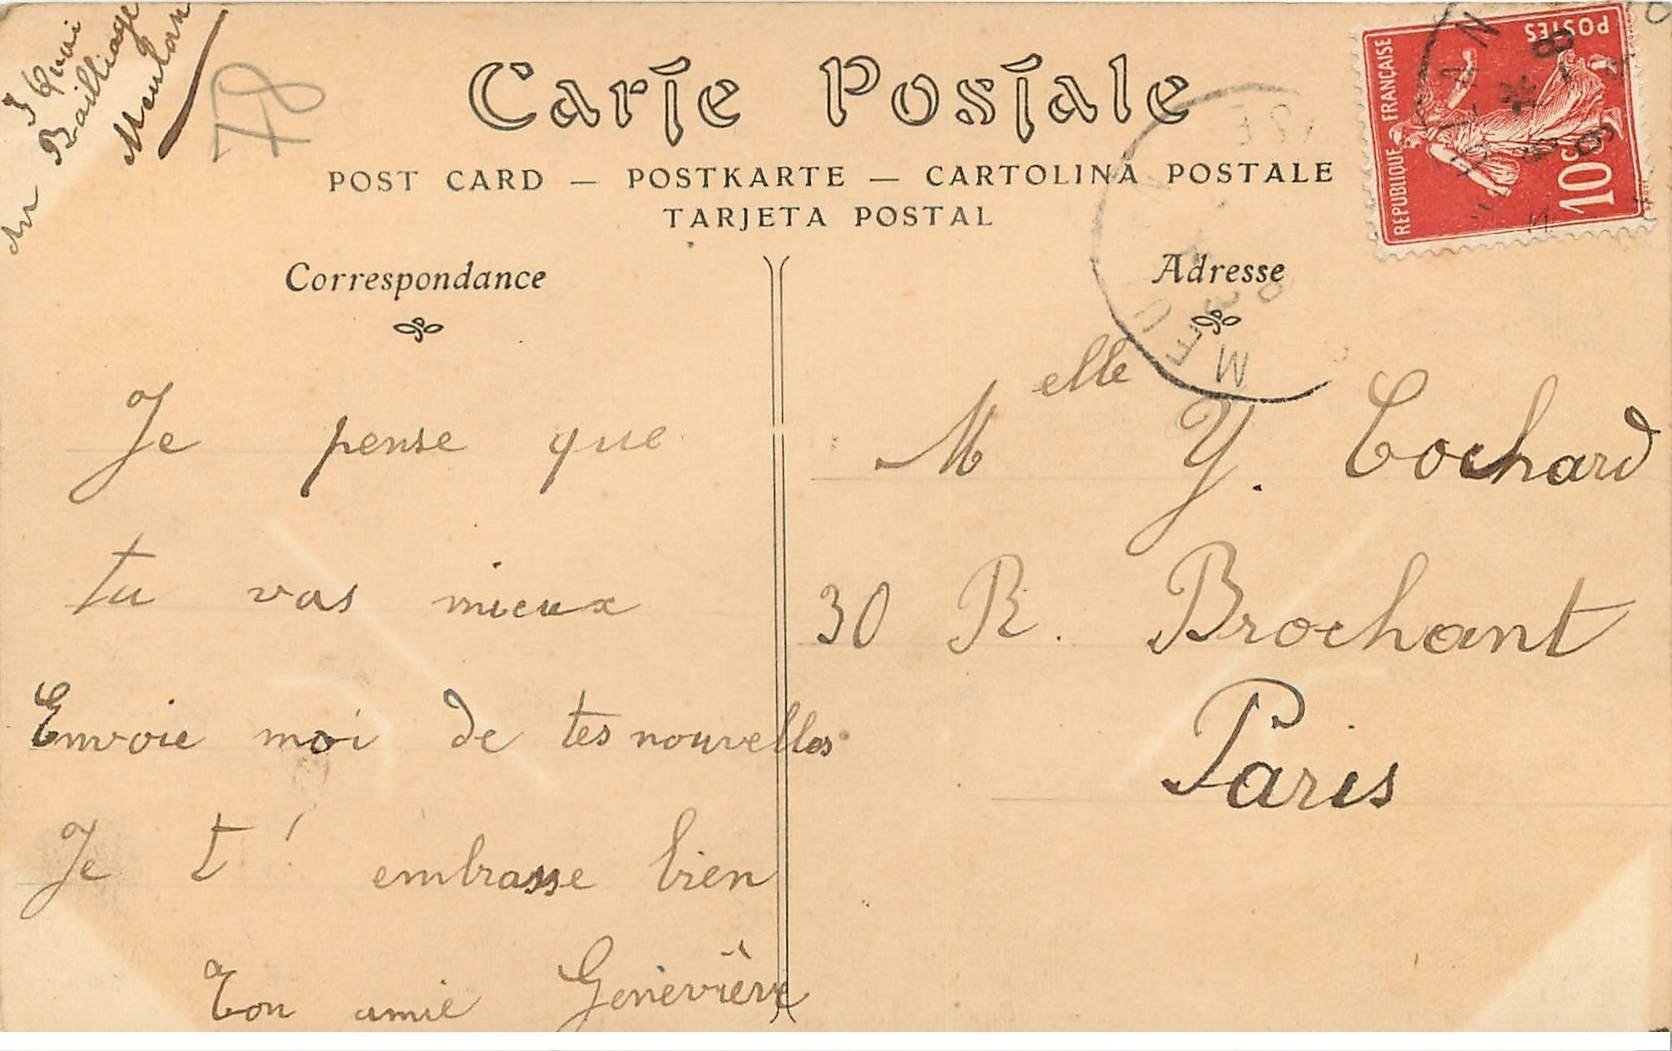 Quai
du Bailliage
Meulan
78
Carte Postale
POST CARD — POSTKARTE — CARTOLINA POSTALE
TARJETA POSTAL
Correspondance
Adresse
REPUBLIQUE FRANÇAISE
POSTES
10c
Je pense que
tu vas mieux
Envoie moi de tes nouvelles
Je t'embrasse bien
Ton amie Geneviève
Melle Y. Cochard
30 R. Brochant
Paris